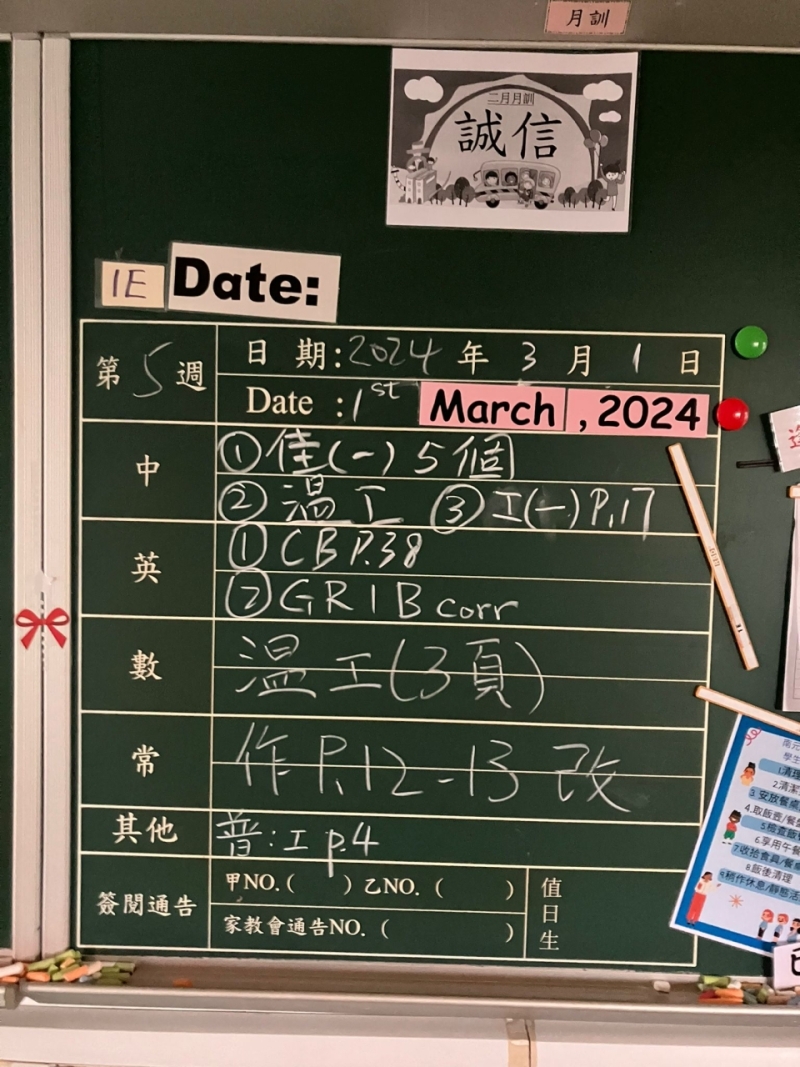 月訓
二月月訓
誠信
1E Date:
第5週
日 期:2024 年 3 月 1 日
Date :1st March , 2024
中
①佳(一)5個
②溫工 ③工(一)P.17
英
①CB P.38
②GR1B corr
數
溫工(3頁)
常
作P.12-13 改
其他
普:工 p.4
簽閱通告
甲NO.( ) 乙NO. ( )
家教會通告NO. ( )
值日生
學生
1.清理
2.清潔
3.安放餐桌
4.取飯壺/餐
5.檢查飯
6.享用午餐
7.收拾食具/餐桌
8.飯後清理
9.稍作休息/靜態活